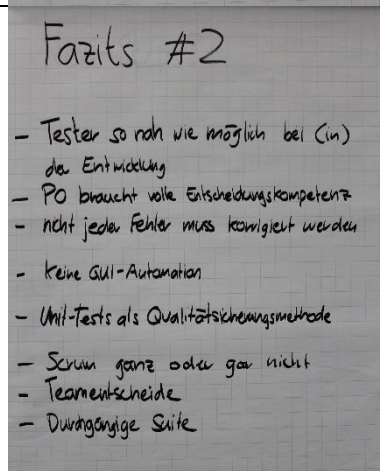 Fazits #2
- Tester so nah wie möglich bei (in)
der Entwicklung
- PO braucht volle Entscheidungskompetenz
- nicht jeder Fehler muss korrigiert werden
- Keine GUI-Automation
- Unit-Tests als Qualitätsicherungsmethode
- Scrum ganz oder gar nicht
- Teamentscheide
- Durchgängige Suite